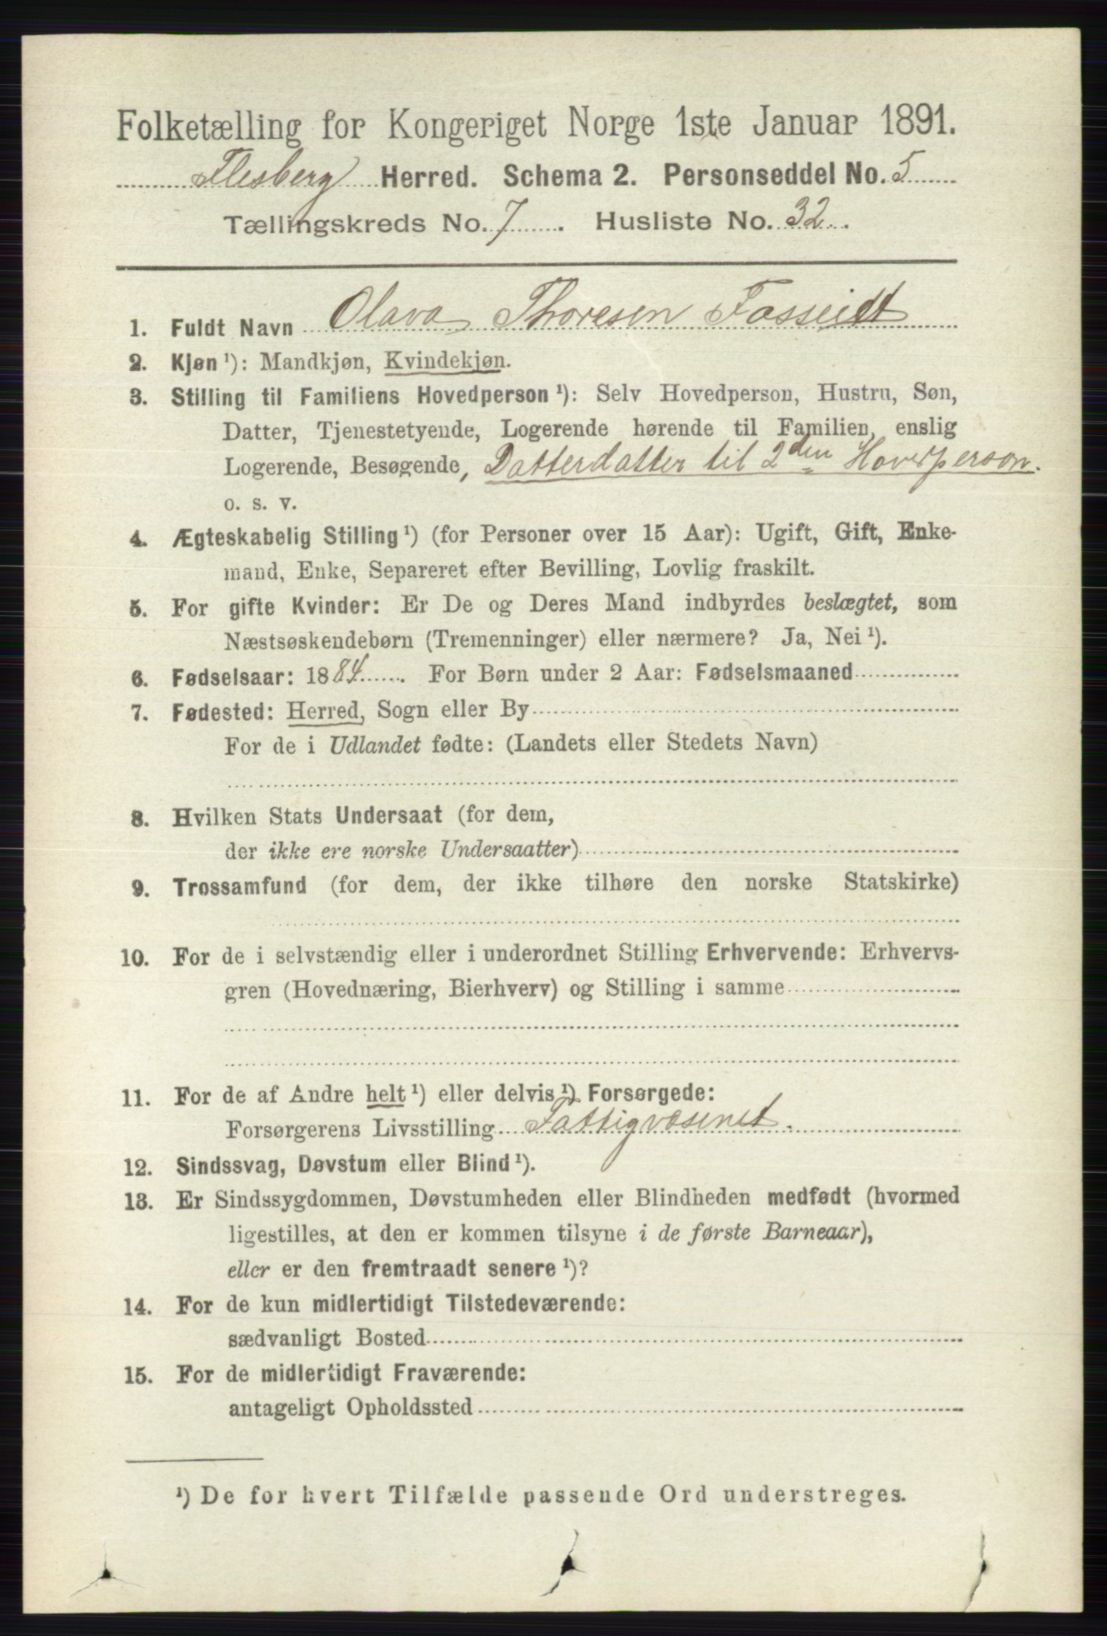 Folketælling for Kongeriget Norge 1ste Januar 1891.
Flesberg Herred. Schema 2. Personseddel No. 5
Tællingskreds No. 7 . Husliste No. 32 .
1. Fuldt Navn Olava Thoresen Fosseidt
2. Kjøn ¹): Mandkjøn, Kvindekjøn.
3. Stilling til Familiens Hovedperson ¹): Selv Hovedperson, Hustru, Søn,
Datter, Tjenestetyende, Logerende hørende til Familien, enslig
Logerende, Besøgende, Datterdatter til 2den Hoverperson.
o. s. v.
4. Ægteskabelig Stilling ¹) (for Personer over 15 Aar): Ugift, Gift, Enke-
mand, Enke, Separeret efter Bevilling, Lovlig fraskilt.
5. For gifte Kvinder: Er De og Deres Mand indbyrdes beslægtet, som
Næstsøskendebørn (Tremenninger) eller nærmere? Ja, Nei ¹).
6. Fødselsaar: 1884. For Børn under 2 Aar: Fødselsmaaned
7. Fødested: Herred, Sogn eller By
For de i Udlandet fødte: (Landets eller Stedets Navn)
8. Hvilken Stats Undersaat (for dem,
der ikke ere norske Undersaatter)
9. Trossamfund (for dem, der ikke tilhøre den norske Statskirke)
10. For de i selvstændig eller i underordnet Stilling Erhvervende: Erhvervs-
gren (Hovednæring, Bierhverv) og Stilling i samme
11. For de af Andre helt ¹) eller delvis ¹) Forsørgede:
Forsørgerens Livsstilling Fattigvæsenet.
12. Sindssvag, Døvstum eller Blind ¹).
13. Er Sindssygdommen, Døvstumheden eller Blindheden medfødt (hvormed
ligestilles, at den er kommen tilsyne i de første Barneaar),
eller er den fremtraadt senere ¹)?
14. For de kun midlertidigt Tilstedeværende:
sædvanligt Bosted
15. For de midlertidigt Fraværende:
antageligt Opholdssted
¹) De for hvert Tilfælde passende Ord understreges.